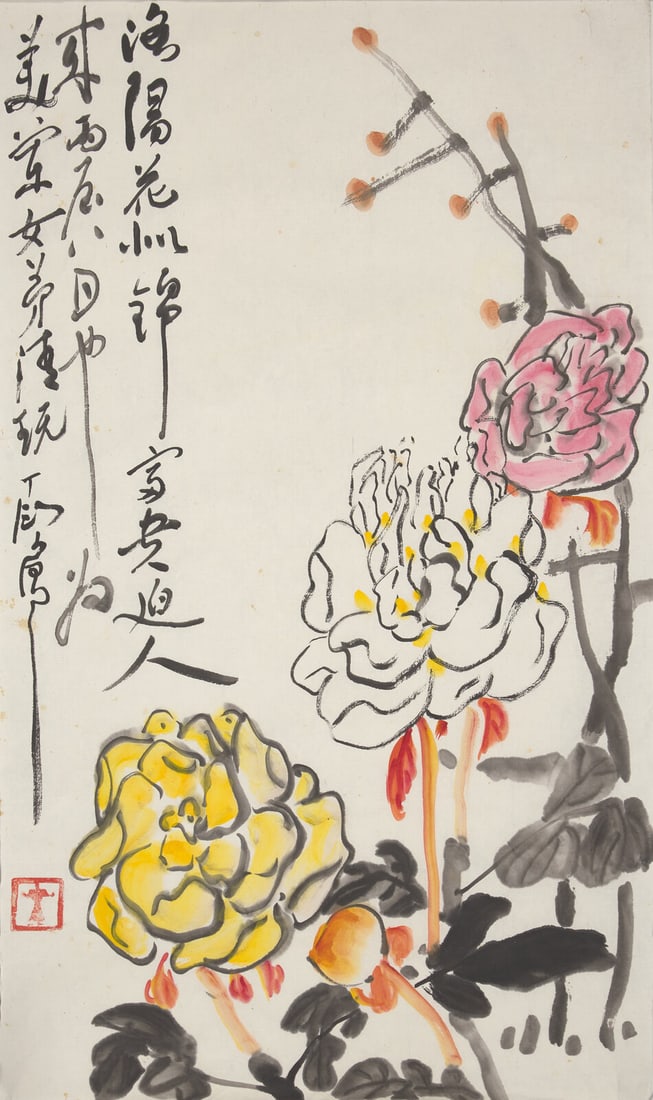 洛陽花似錦富貴迫人
來丙辰八月也為
美女弟清玩丁衍庸